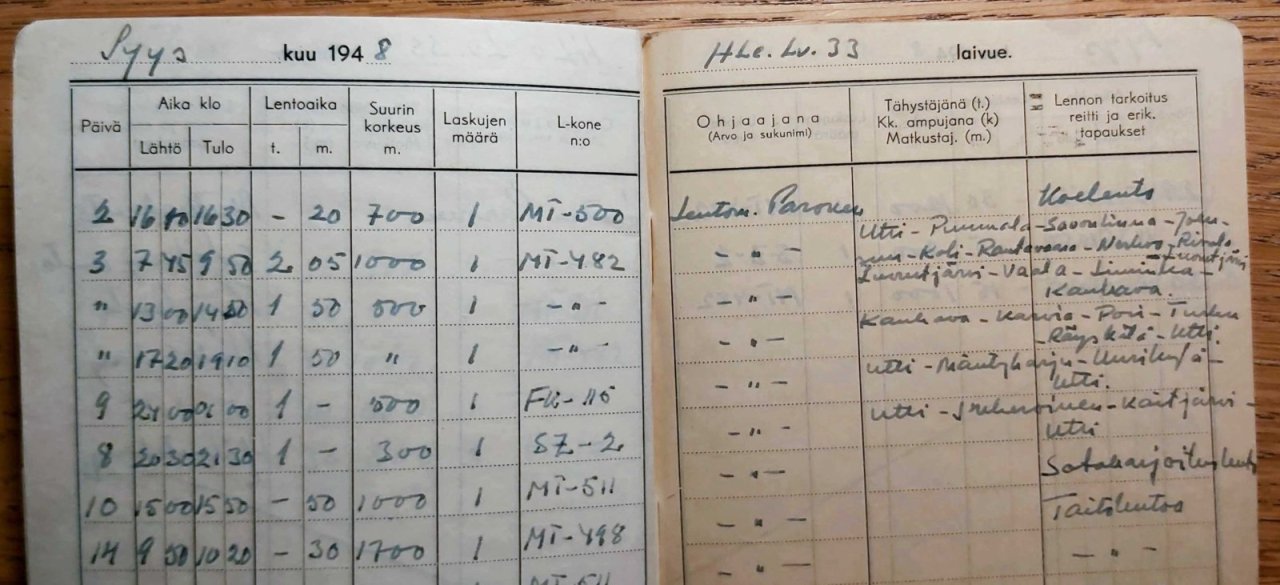 Syys kuu 1948
Päivä Aika klo Lentoaika Suurin korkeus m. Laskujen määrä L-kone n:o
Lähtö Tulo t. m.
2 16 10 16 30 - 20 700 1 MT-500
3 7 45 9 50 2 05 1000 1 MT-482
" 13 00 14 50 1 50 500 1 -"-
" 17 20 19 10 1 50 " 1 -"-
9 1 - 500 1
8 20 30 21 30 1 - 300 1 SZ-2
10 15 00 15 50 - 50 1000 1 MT-511
14 9 50 10 20 - 30 1700 1 MT-498
MT-511
HLe. Lv. 33 laivue.
Ohjaajana Tähystäjänä (t.) Lennon tarkoitus
(Arvo ja sukunimi) Kk. ampujana (k) reitti ja erik.
Matkustaj. (m.) tapaukset
Lentom. Paronen Koelento
Utti - Puumala - Savonlinna - Joen-
-"- suu - Koli - Rautavaara -
Vaala - Liminka -
-"- Kauhava.
Kauhava - Karvia - Pori - Turku
-"- Räyskälä - Utti.
Utti - Mäntyharju -
-"- Utti.
Utti - - Kaitjärvi -
-"- Utti
-"- Sotaharjoituslento
-"- Taitolentoa
-"- -"-